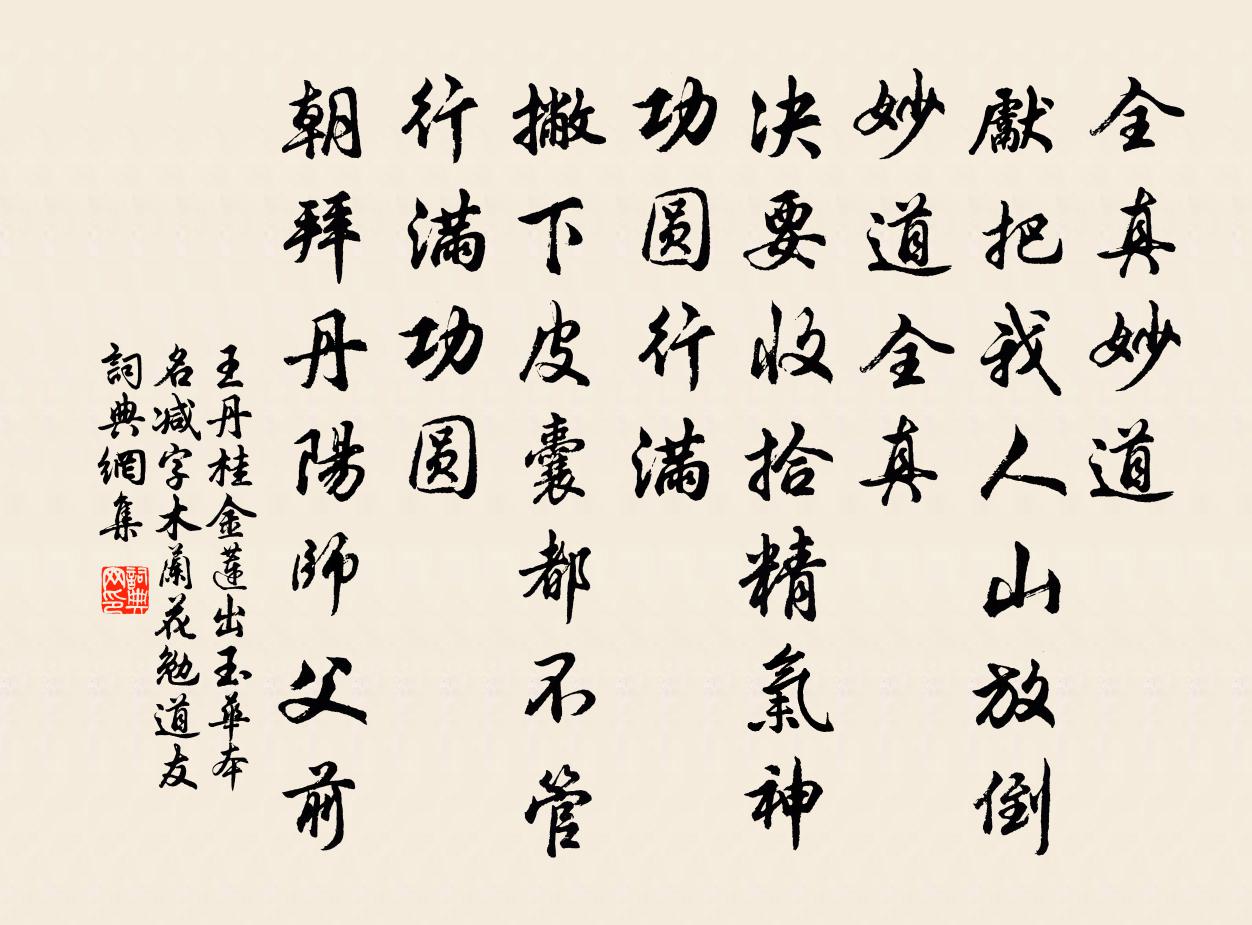 全真妙道
獻把我人山放倒
妙道全真
決要收拾精氣神
功圓行滿
撇下皮囊都不管
行滿功圓
朝拜丹陽師父前
王丹桂金蓮出玉華本
名減字木蘭花勉道友
詞典網集
詞典
网印